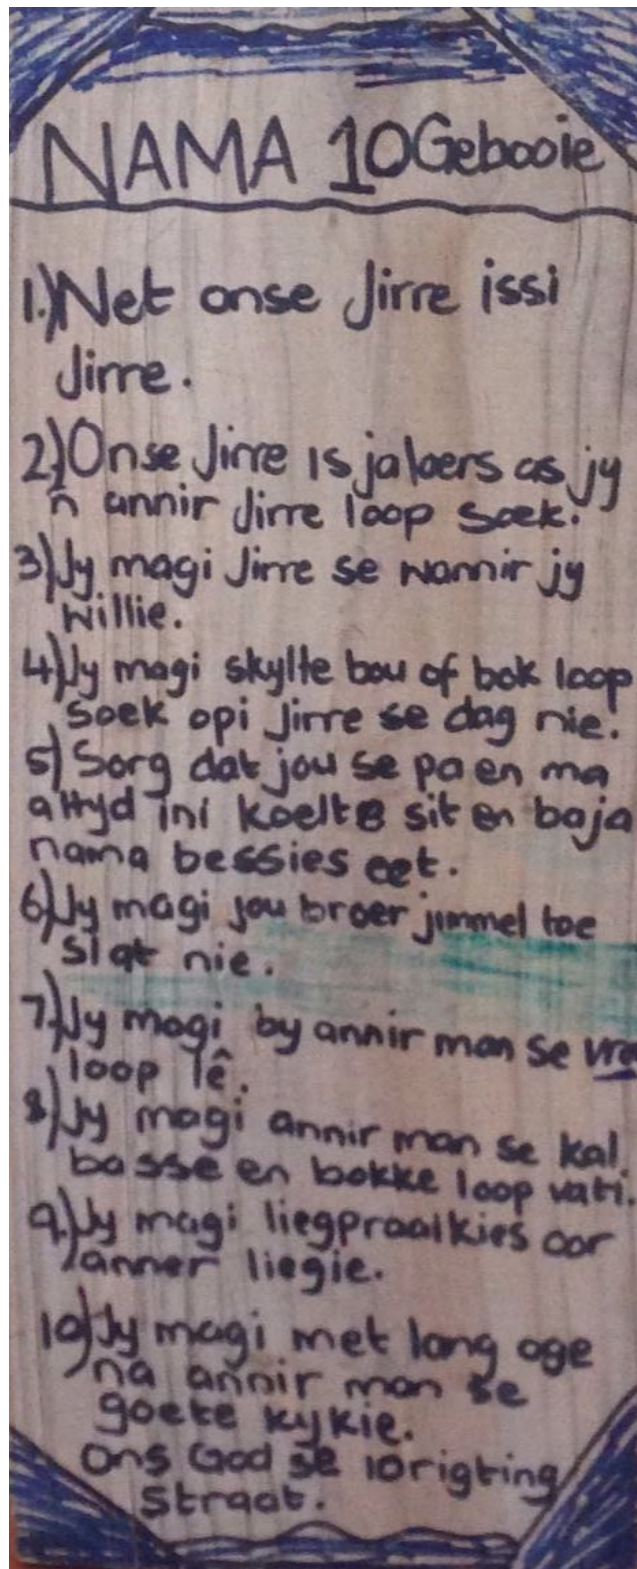 NAMA 10 Gebooie
1.) Net onse Jirre issi
Jirre.
2.) Onse Jirre is jaloers as jy
'n annir Jirre loop soek.
3.) Jy magi Jirre se wannir jy
willie.
4.) Jy magi skylte bou of bok loop
soek opi Jirre se dag nie.
5) Sorg dat jou se pa en ma
altyd ini koelte sit en baja
nama bessies eet.
6.) Jy magi jou broer jimmel toe
slat nie.
7.) Jy magi by annir man se
loop lê.
8.) Jy magi annir man se kal.
basse en bokke loop vati.
9.) Jy magi liegpraatkies oor
anner liegie.
10) Jy magi met lang oge
na annir man se
goete kykie.
Ons God se 10 rigting
straat.